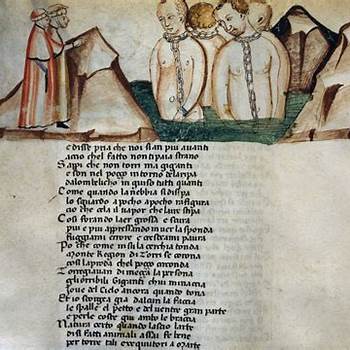 e disse pria che noi sian piu avanti
accio chel fatto non ti paia strano
Sappi che non torri ma giganti
e son nel poçço intorno da la ripa
dalombelicho in giuso tutti quanti
Come quando la nebbia si dissipa
lo sguardo a pocho apocho rafigura
cio che cela il vapor che laire stipa
Cosi forando laer grossa e scura
piu e piu appressando inver la sponda
fuggiami errore e cresceami paura
Pero che come in su la cerchia tonda
Monte Region di Torri se corona
cosi la proda chel poço circonda
Torregiavan di meçça la persona
gli orribili Giganti chui minaccia
Jove del Cielo ancora quando tona
Et io scorgea gia dalcun la faccia
le spalle el petto e del ventre gran parte
e per le coste giu ambo le braccia
Natura certo quando lascio larte
di si fatti animali assai fe bene
per torre tali exequitori a Marte